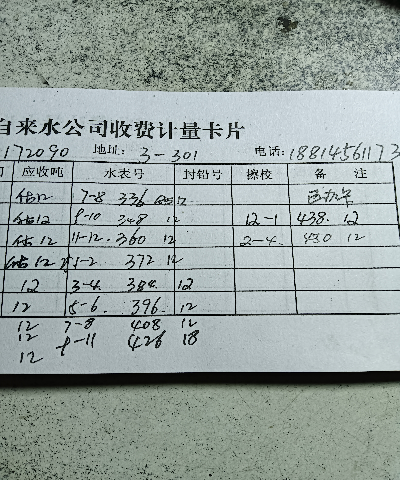 自来水公司收费计量卡片
172090 地址: 3-301 电话: 18814561173
应收吨 水表号 封铅号 擦校 备 注
估12 7-8 336 估12
估12 9-10 348 12 12-1 438. 12
估12 11-12. 360 12 2-4. 450 12
估12 1-2 372 12
12 3-4. 384. 12
12 5-6. 396. 12
12 7-8 408 12
12 9-11 426 18
12